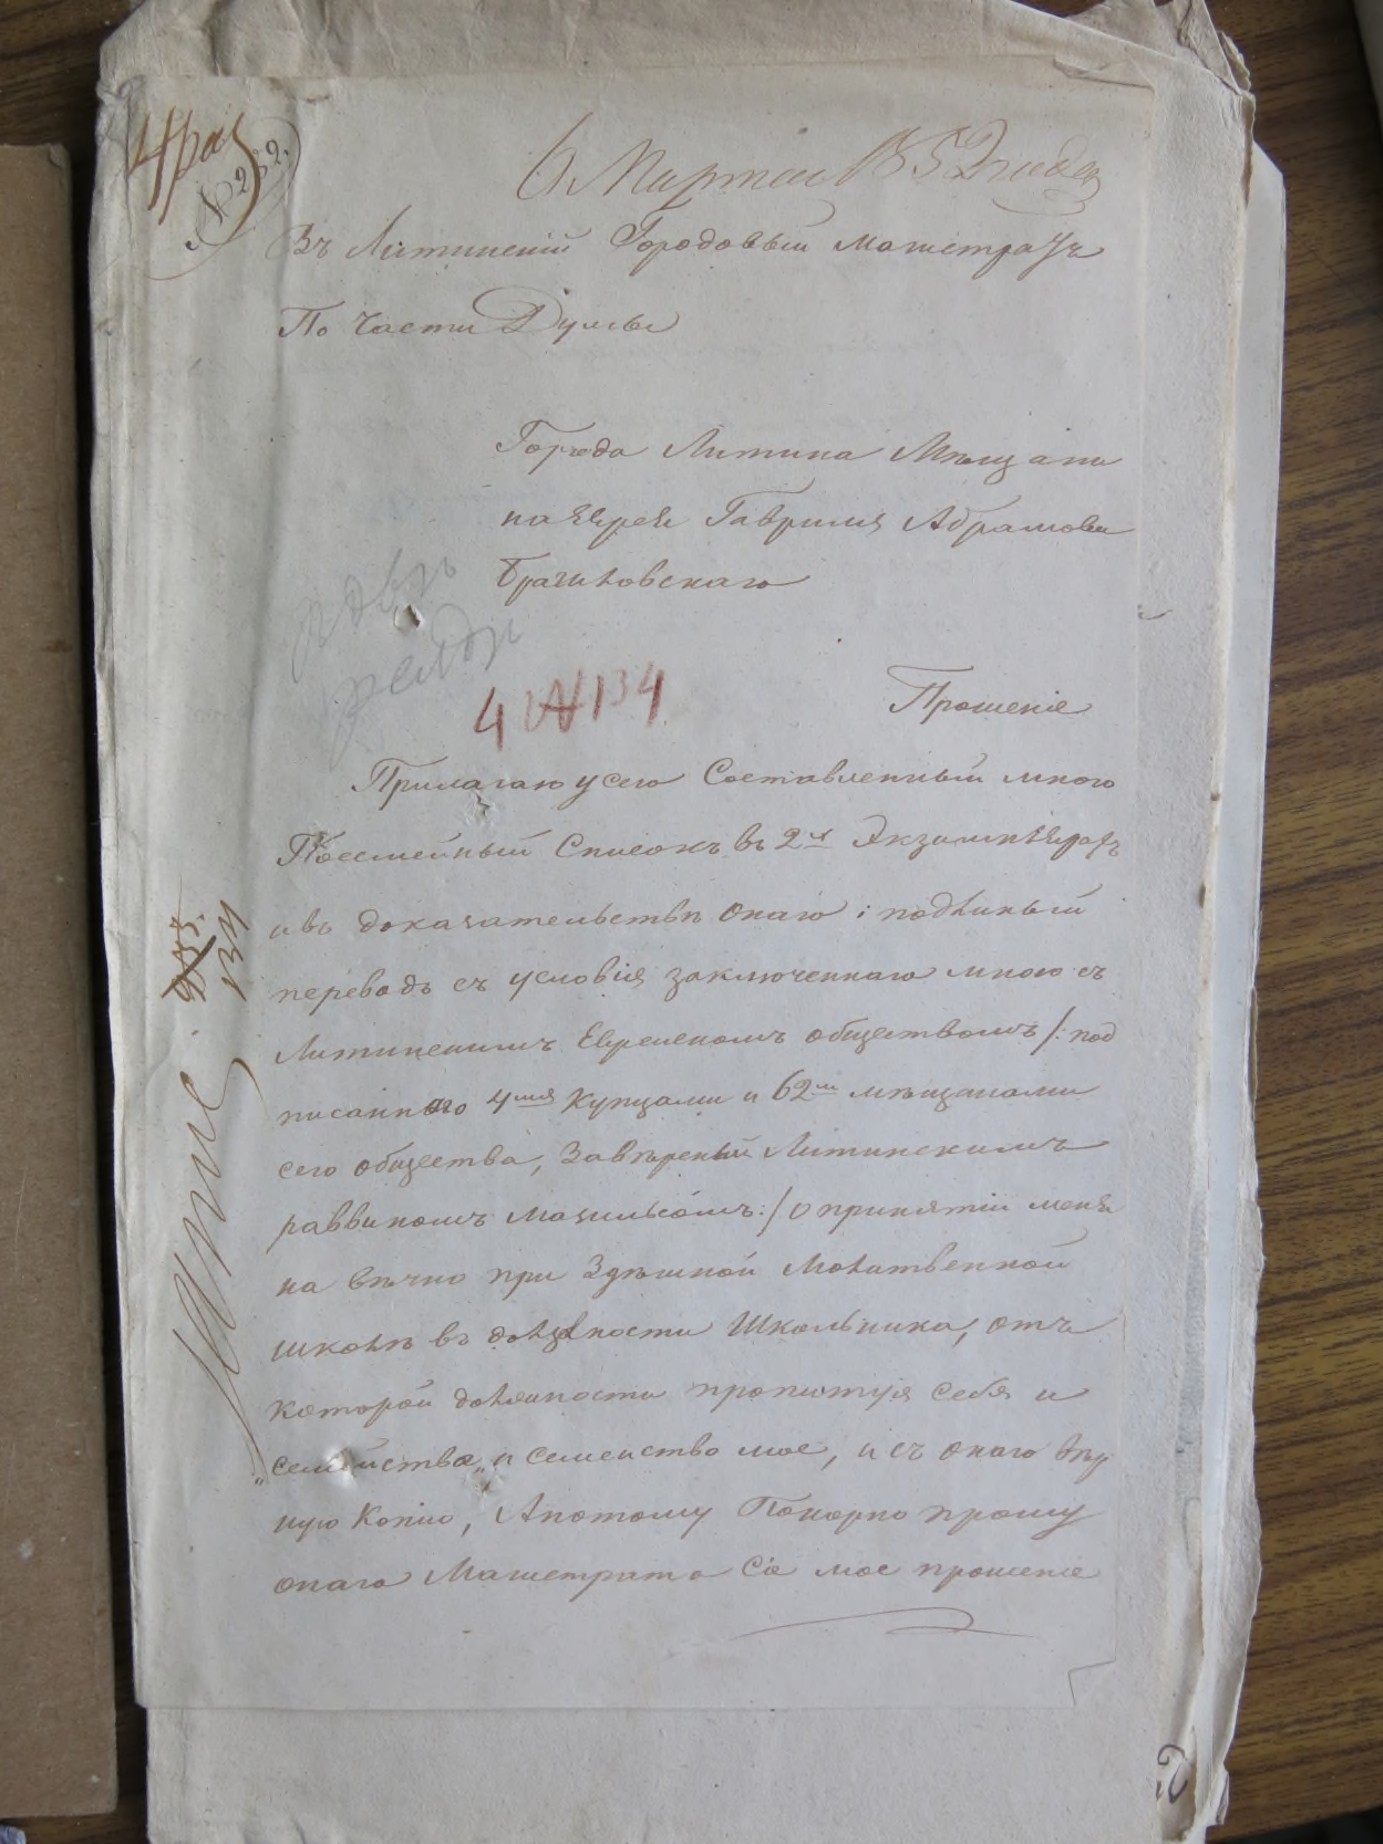 № 282.
6 Марта 1852 года
Въ Литинскій Городовый Магистратъ
По Части Думы
Города Литина Мѣщани
на Еврея Гаврила Абрамова
Брачиковскаго
4 № 134
Прошеніе
Прилагаю у сего Составленный мною
Посемейный Списокъ въ 2х Экземплярахъ
и въ доказательствѣ онаго: подлиный
переводъ съ условія заключеннаго мною съ
Литинскимъ Еврейскомъ обществомъ /: под
писаннаго 4мя Купцами и 62мя мѣщанами
сего общества, Завѣреный Литинскимъ
раввиномъ :/ о принятіи меня
на вѣчно при Здѣшной Молитвенной
школѣ въ должности Школьника, отъ
которой должности пропитуя себя и
„семейства„ и семейство мое, и съ онаго вѣр
ную Копію, А потому Покорно прошу
онаго Магистрата Сіе мое прошеніе
134